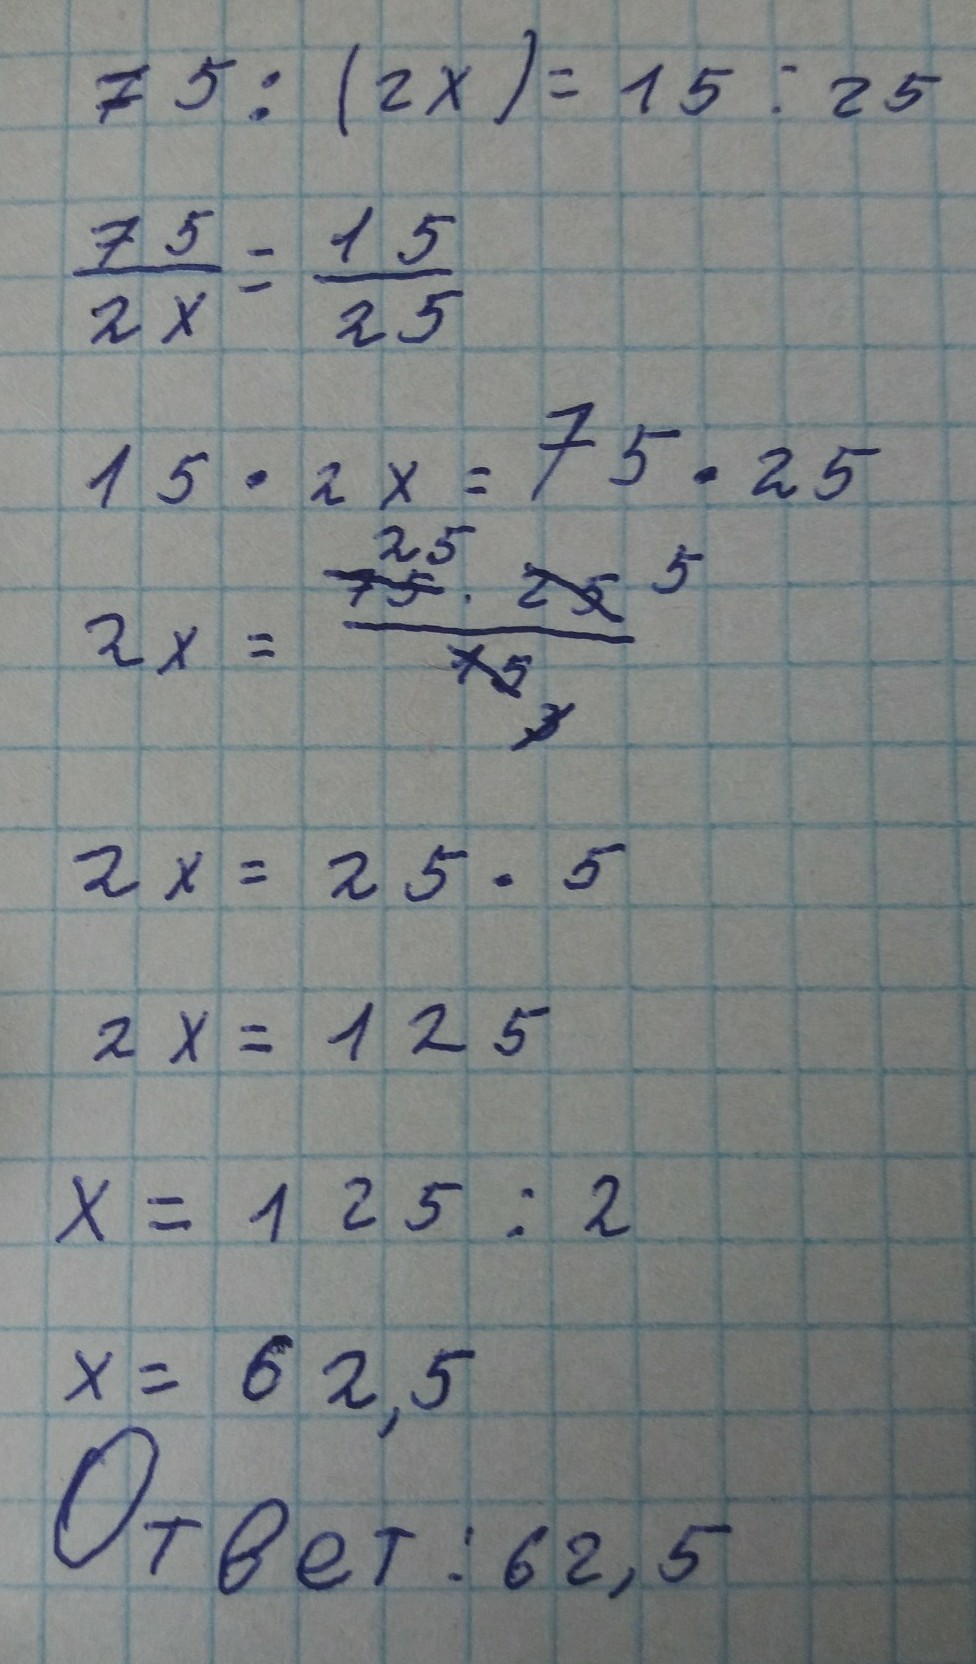 75 : (2x) = 15 : 25
75 = 15
2x 25
15 · 2x = 75 · 25
25
2x = 75 · 25 5
15
3
2x = 25 · 5
2x = 125
x = 125 : 2
x = 62,5
Ответ: 62,5